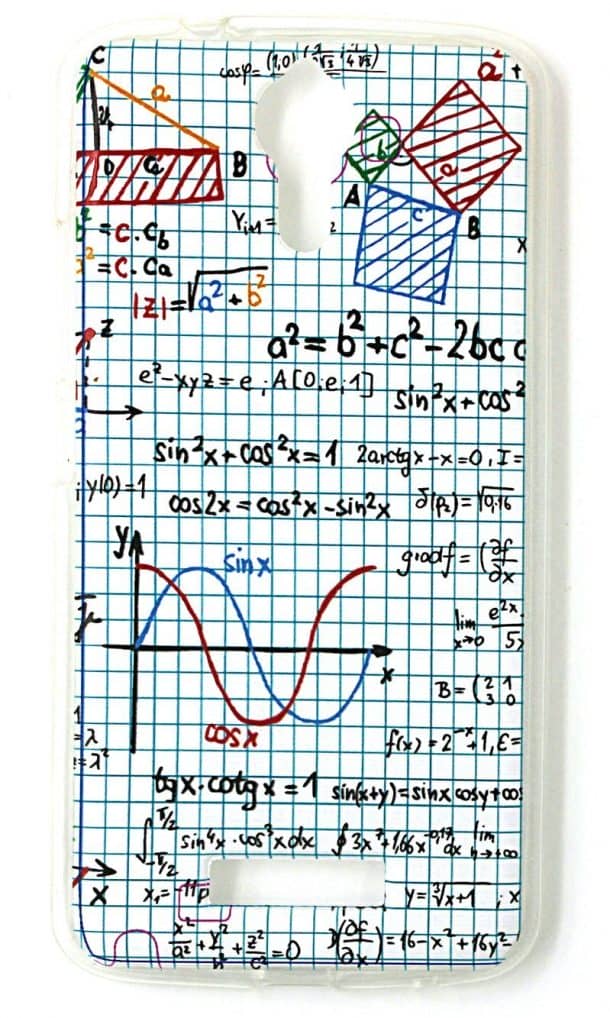 C
cosφ=
a² +
a
b
a
D Ca B
A
c
B
b² =c.cb
² =c.ca
Yᵢ₊₁ =
x
|z|=√a²+b²
z
a²=b²+c²-2bc c
eᶻ-xyz=e ; A[0;e;1]
sin²x+cos²
sin²x+cos²x=1
2arctgx-x=0, I=
; y(0)=1
cos2x=cos²x-sin²x
δ(p₂)=√0,16
y
sinx
gradf=(∂f/∂x
lim x→0 e²ˣ- 5x
x
B=(2 1 3 0
cosx
=λ
=λ²
f(x)=2⁻ˣ+1, ε=
tgx.cotgx=1
sin(x+y)=sinx cosy+cos
∫ π/2 -π/2 sin⁴x·cos³xdx
∮3x⁷+1,66x⁻⁰,¹⁷dx
lim n→+∞
x
x₁=-11p
y=³√x+1 ; x
x²/a²+y²/b²+z²/c²=0
(∂f/∂x)=16-x²+16y²-